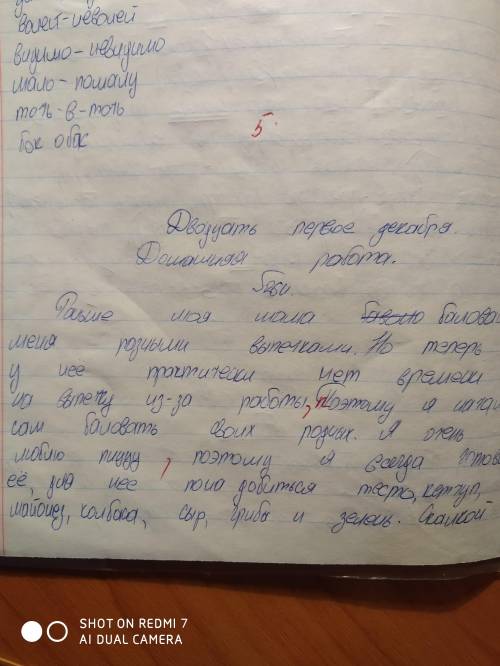 волей-неволей
видимо-невидимо
мало-помалу
точь-в-точь
бок о бок
5
Двадцать первое декабря.
Домашняя работа.
Раньше моя мама баловал
меня разными выпечками. Но теперь
у неё практически нет времени
на выпечку из-за работы, Поэтому я начал
сам баловать своих родных. Я очень
люблю пиццу, поэтому я всегда готов
её, для неё понадобиться тесто, кетчуп,
майонез, колбаса, сыр, грибы и зелень. Скалкой
SHOT ON REDMI 7
AI DUAL CAMERA